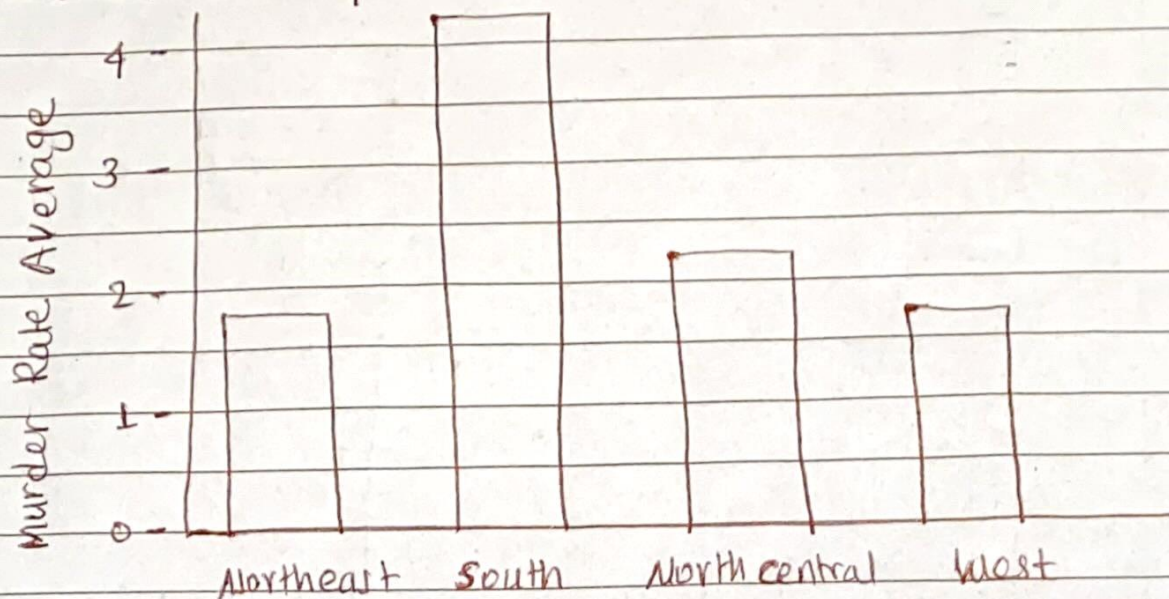 4
3
2
1
0
Murder Rate Average
Northeast South North central West